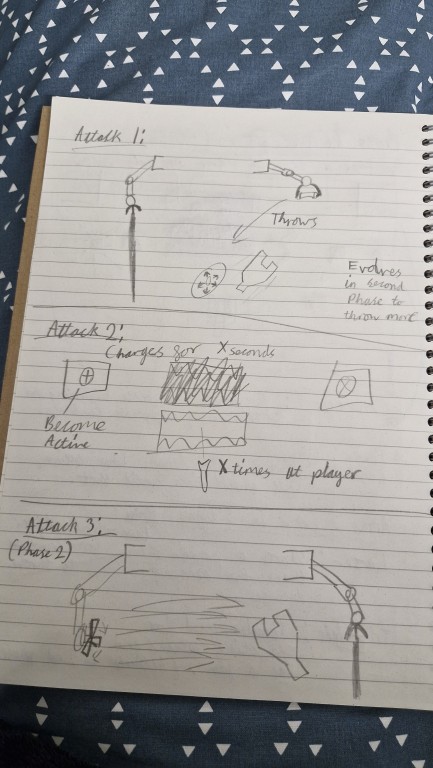 Attack 1:
Throws
Evolves
in second
Phase to
throw more
Attack 2:
Charges for X seconds
Become
Active
X times at player
Attack 3:
(Phase 2)